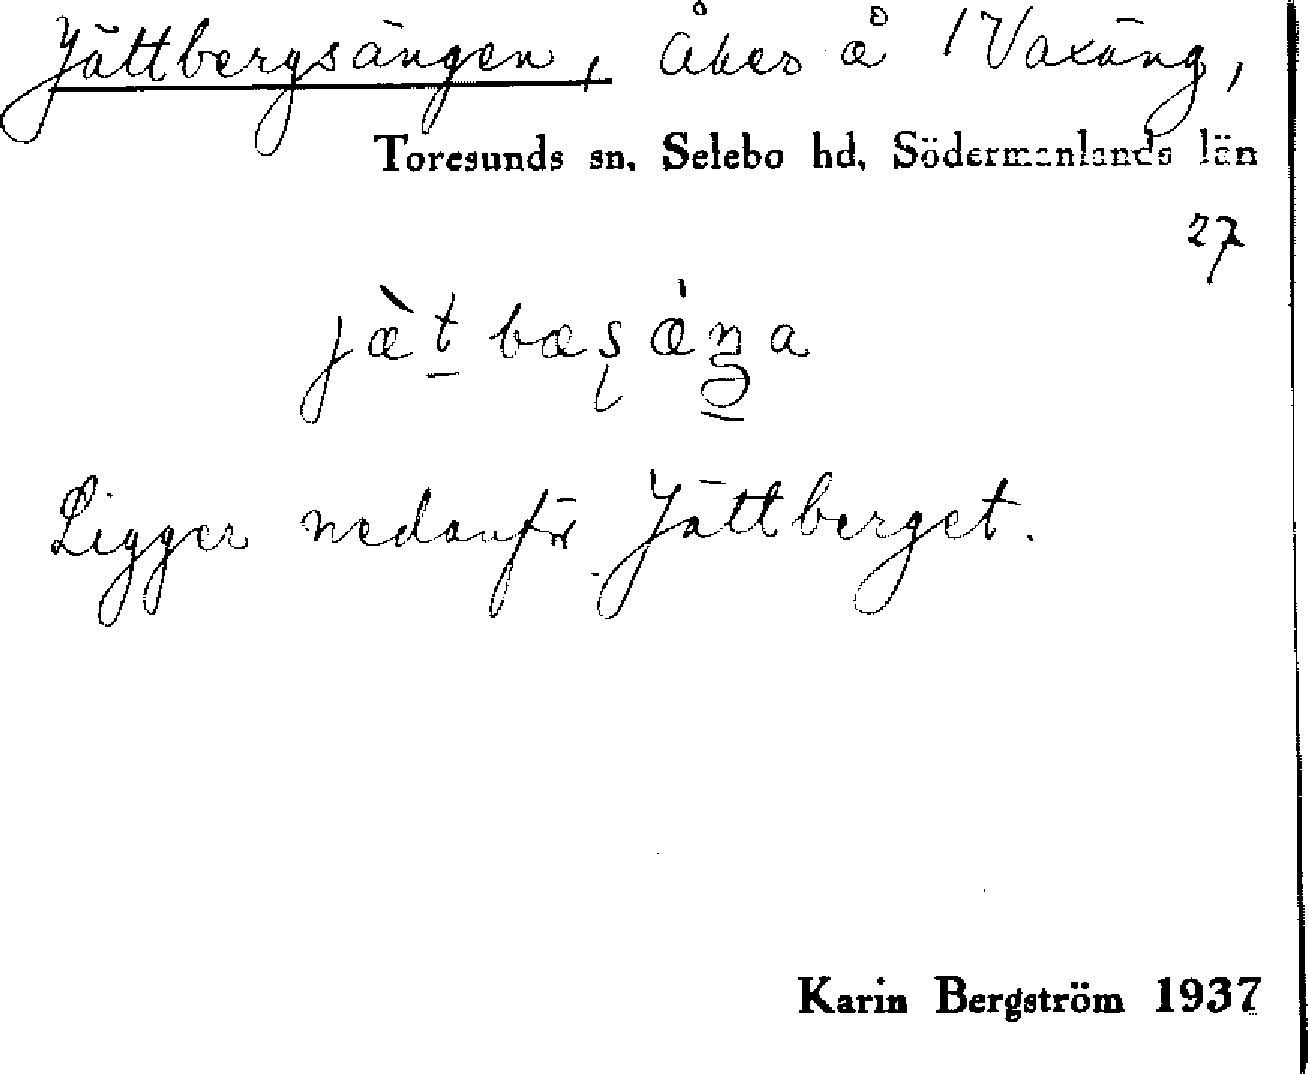 Jättbergsängen, åker å 1 Vaxäng,
Toresunds sn. Selebo hd, Södermanlands län
27
jæ̀t̠ bæʂæ̍ŋa
Ligger nedanför Jättberget.
Karin Bergström 1937